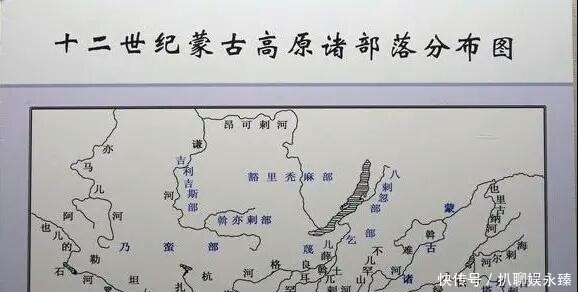 十二世纪蒙古高原诸部落分布图
昂可剌河
谦河
亦马儿河
吉利吉斯部
豁里秃麻部
八剌忽部
斡亦剌部
蒙古诸
也里古纳河
海剌儿河
阿勒坦
也儿的石河
乃蛮部
蔑儿乞部
不儿罕
斡难
薛良格
杭
土
快传号／扒聊娱永臻